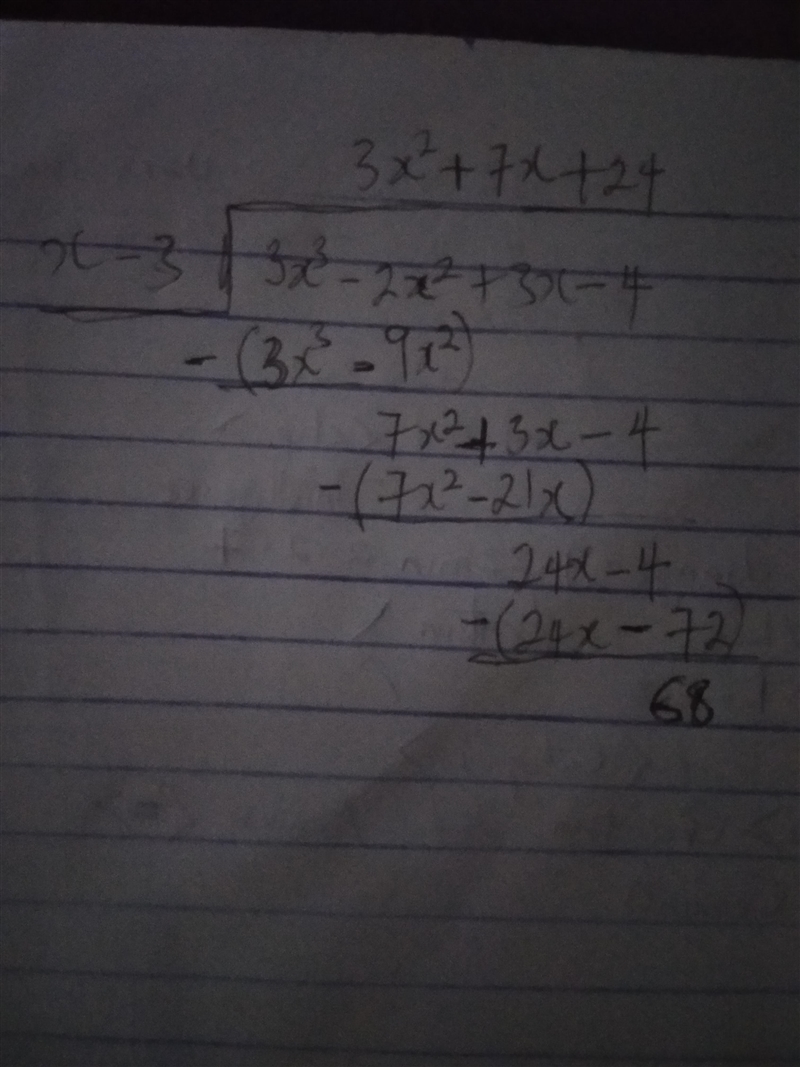 3x² + 7x + 24
x - 3 3x³ - 2x² + 3x - 4
- (3x³ - 9x²)
7x² + 3x - 4
- (7x² - 21x)
24x - 4
- (24x - 72)
68